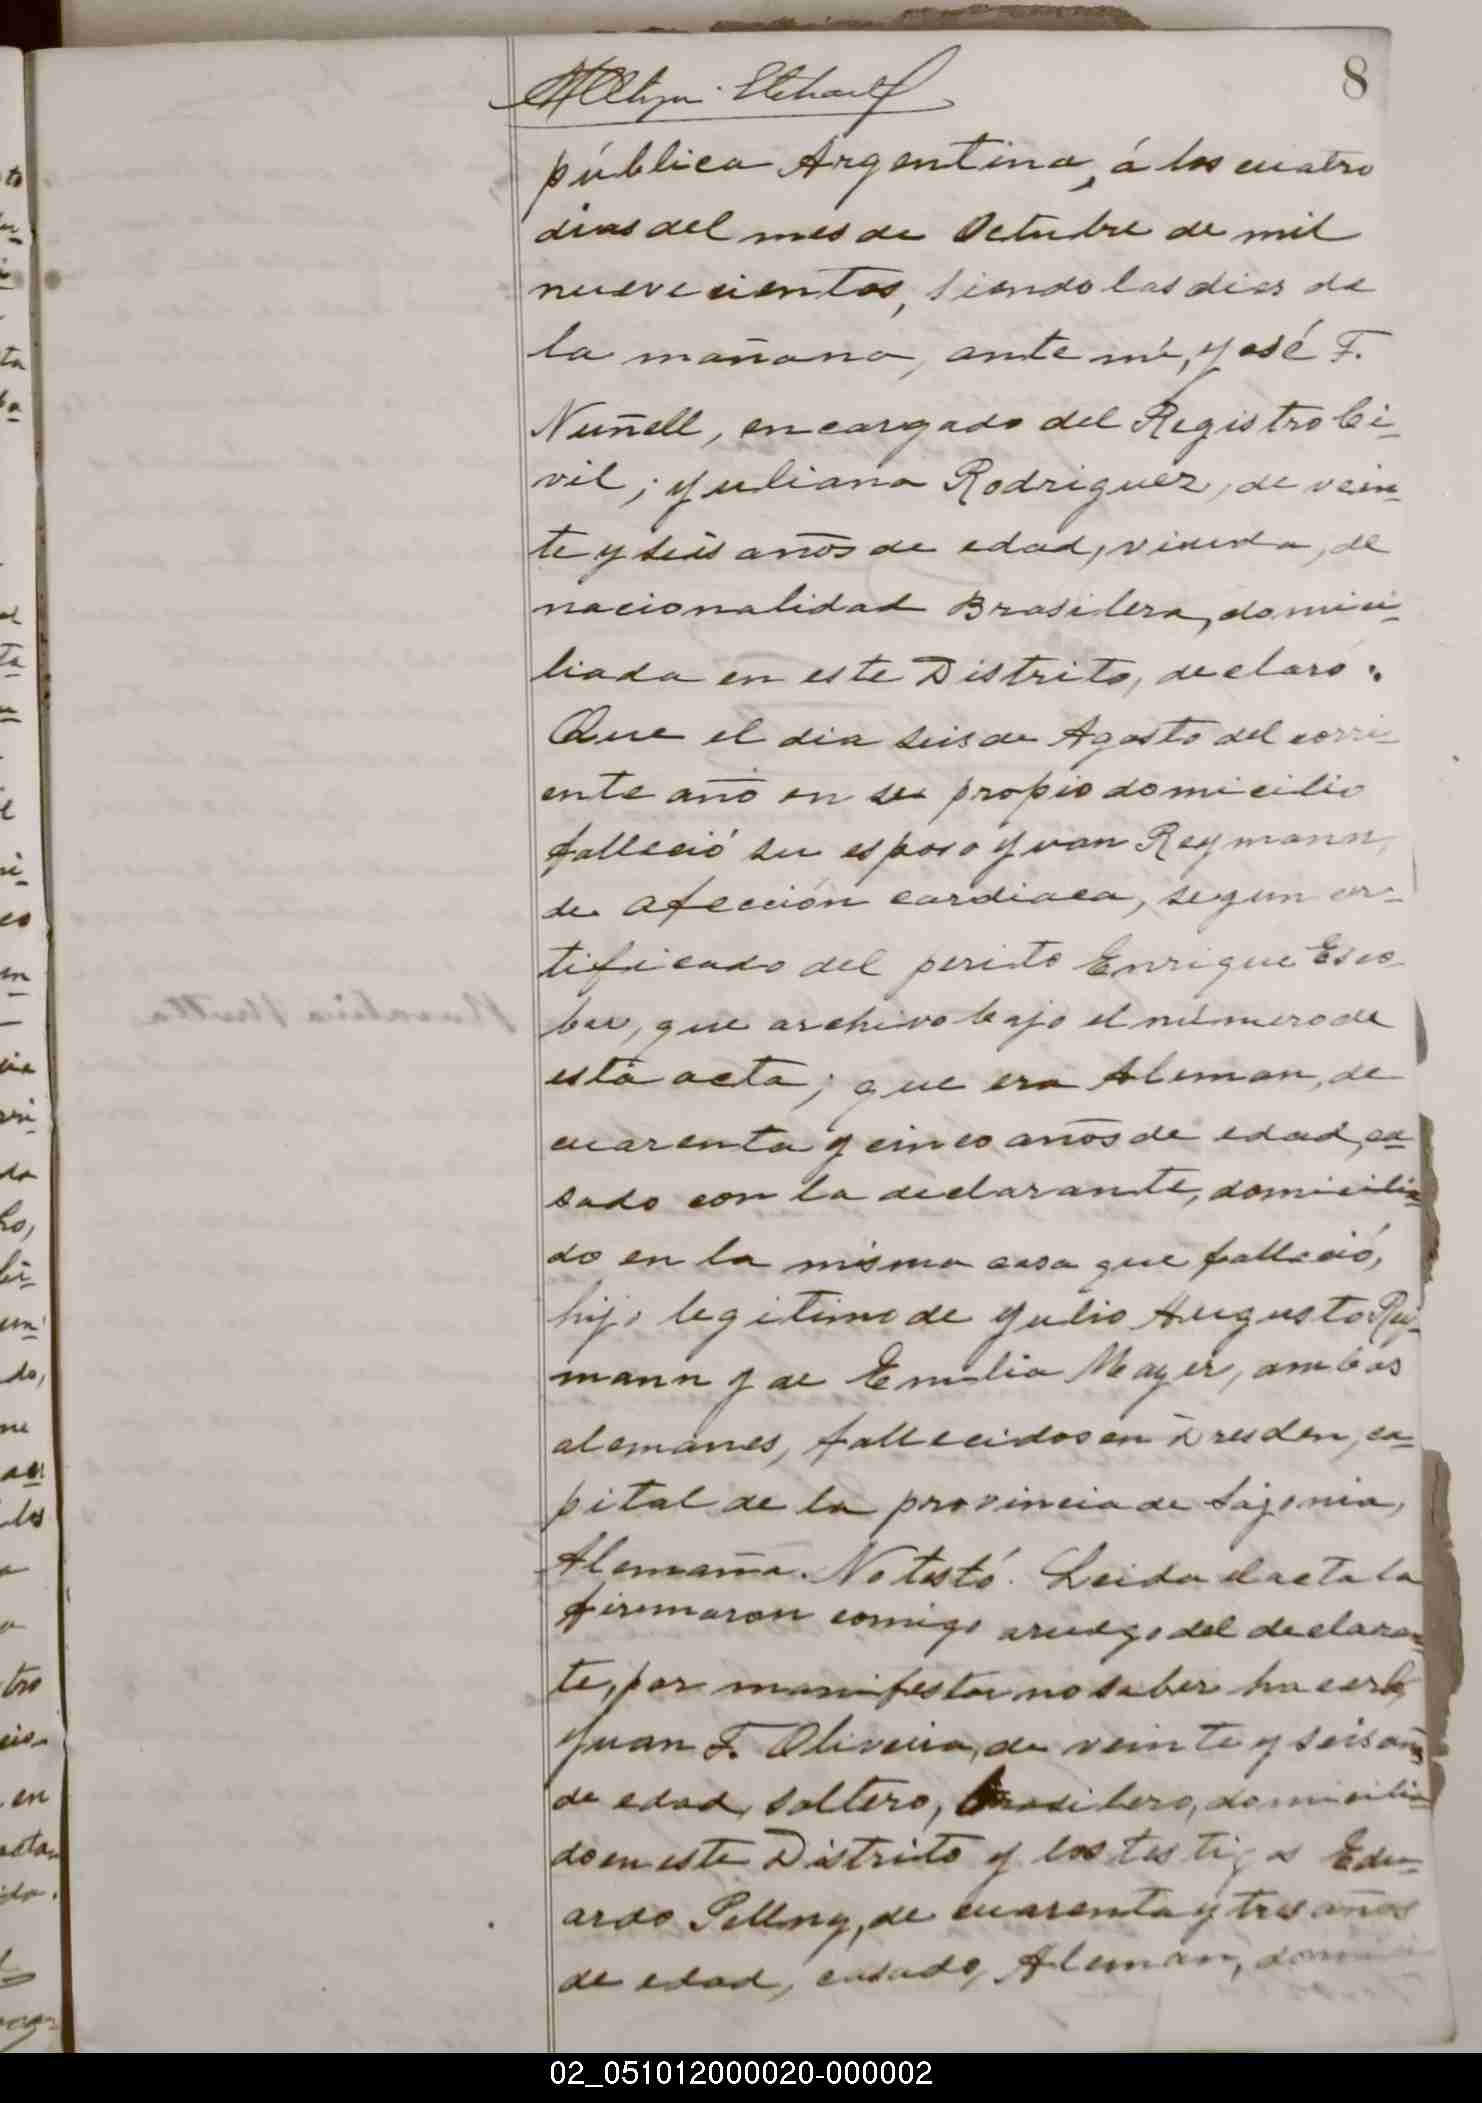 8
pública Argentina, á los cuatro
dias del mes de Octubre de mil
nuevecientos, siendo las dies de
la mañana, ante mi, José F.
Nuñell, encargado del Registro Ci-
vil; Juliana Rodriguez, de vein-
te y seis años de edad, viuda, de
nacionalidad Brasilera, domici-
liada en este Distrito, declaró:
Que el dia seis de Agosto del corri-
ente año en su propio domicilio
falleció su esposo Juan Reymann,
de afección cardiaca, segun cer-
tificado del perito Enrique Esco-
bar, que archivo bajo el número de
esta acta; que era Aleman, de
cuarenta y cinco años de edad, ca-
sado con la declarante, domicilia-
do en la misma casa que falleció,
hijo legitimo de Julio Augusto Rey-
mann y de Emilia Mayer, ambos
alemanes, fallecidos en Dresden, ca-
pital de la provincia de Sajonia,
Alemaña. No testó. Leida el acta la
firmaron comigo a ruego del declaran-
te, por manifestar no saber hacerlo,
Juan F. Oliveira, de veinte y seis años
de edad, soltero, brasilero, domicilia-
do en este Distrito y los testigos Edu-
ardo Pellny, de cuarenta y tres años
de edad, casado, Aleman, domici
02_051012000020-000002